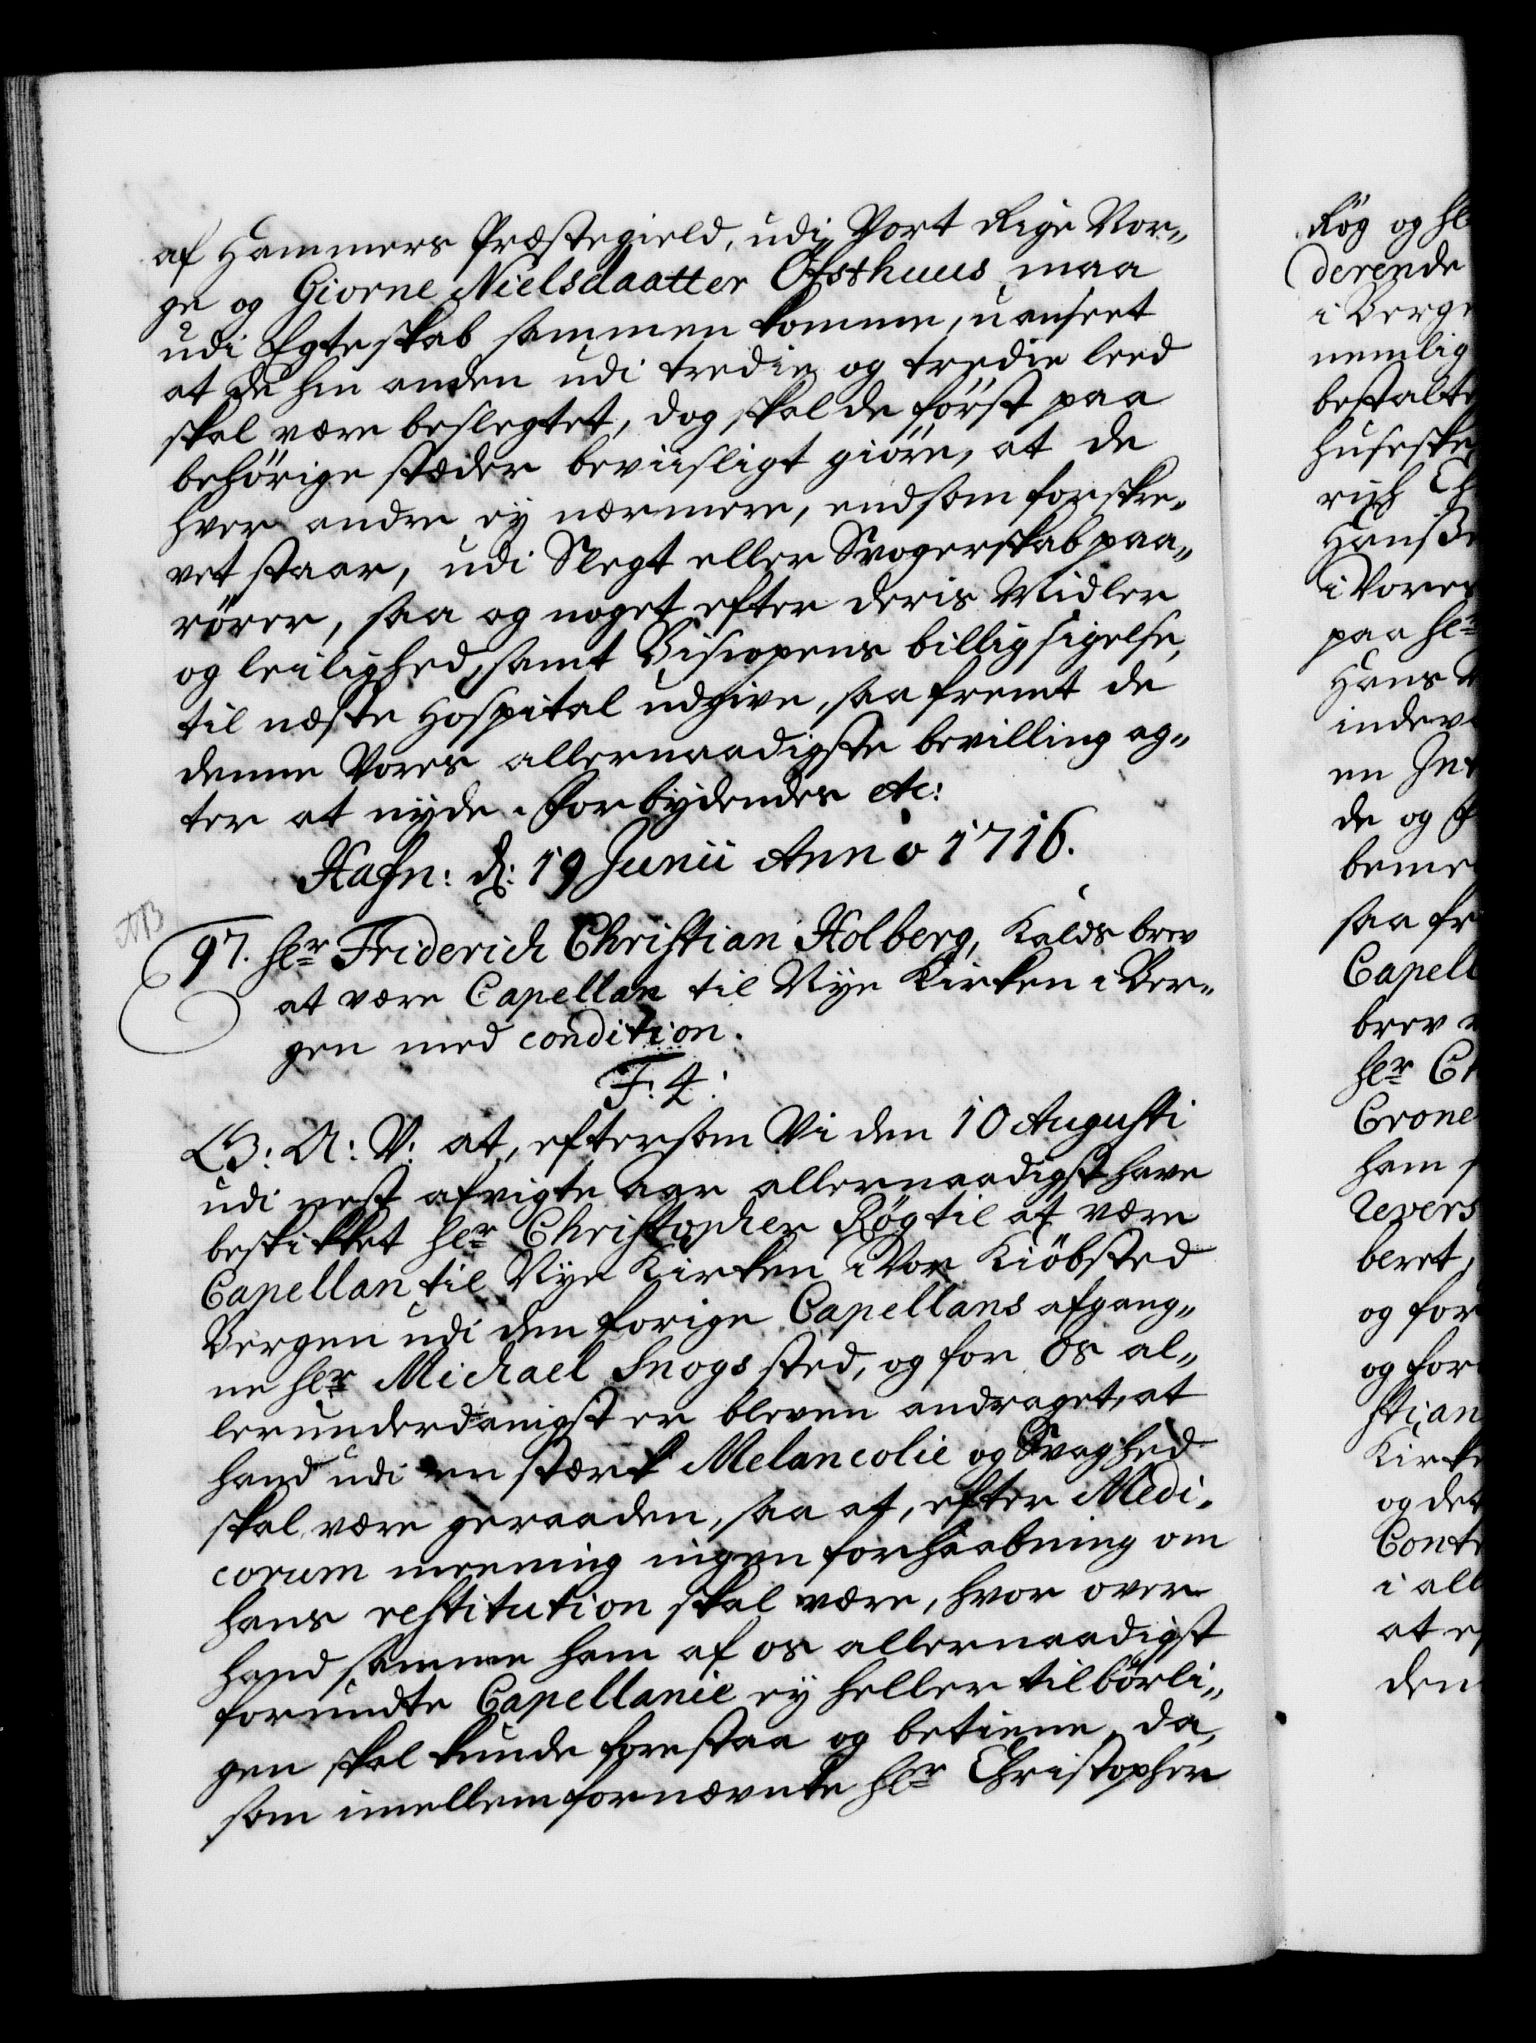 af Hammers Præstegield, udi Vort Rige Nor„
ge og Giorne Nielsdaatter Ofsthuus maa
udi Egteskab sammen komme, uanseet
at de hin anden udi tredie og tredie leed
skal være beslegtet, dog skal de först paa
behörige stæder beviisligt giöre, at de
hver andre ey nærmere, end som forskre„
vet staar, udi Slegt eller Svogerskab paa„
rörer, saa og noget efter deris Midler
og leilighed, samt Biscopens billig sigelse,
til næste Hospital udgive, saa fremt de
denne Vores allernaadigste bevilling ag„
ter at nyde. Forbydendes etc:
Hafn: d: 19 Junii Anno 1716.
NB
97. Hlr Friderich Christian Holberg, Kalds brev
at være Capellan til Nye Kirken i Ber„
gen med condition.
F: 4:
G: A: V: at, eftersom Vi den 10 Augusti
udi nest afvigte Aar allernaadigst have
beskikket Hlr Christopher Røg til at være
Capellan til Nye Kirken i Vor Kiöbsted
Bergen udi den forige Capellans afgang„
ne Hlr Michael Snogs sted, og for Os al„
lerunderdanigst er bleven andraget, at
hand udi en stærk Melancolie og Svaghed
skal være geraaden, saa at, efter Medi„
corum meening ingen forhaabning om
hans restitution skal være, hvor over
hand samme ham af os allernaadigst
forundte Capellanie ey heller tilbörli„
gen skal kunde forestaa og betiene, da,
som imellem fornævnte Hlr Christopher
Røg og Hl
derende
i Berge
nemlig
bestalte
rich
i Vores
paa Hlr
Hans
de og
saa fr
Capell
brev
Hlr
Crone
ham
Revers
beret,
og for
og for
stian
Kirke
og det
Cont
i all
at
den